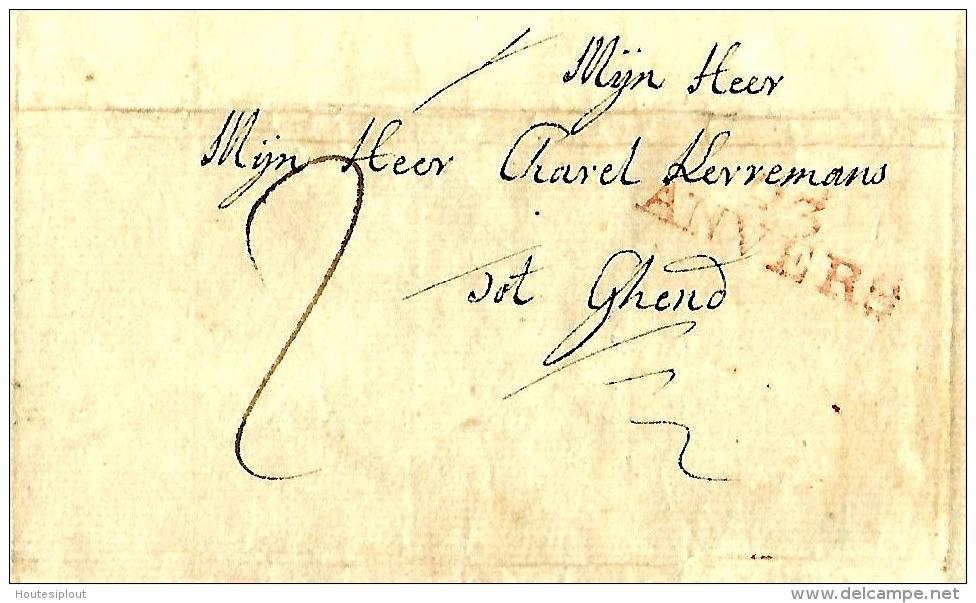 Mijn Heer
Mijn Heer Charel Kerremans
93
ANVERS
tot Ghend
2
Houtesiplout
www.delcampe.net